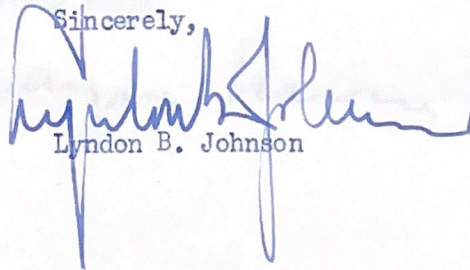 Sincerely,
Lyndon B Johnson
Lyndon B. Johnson